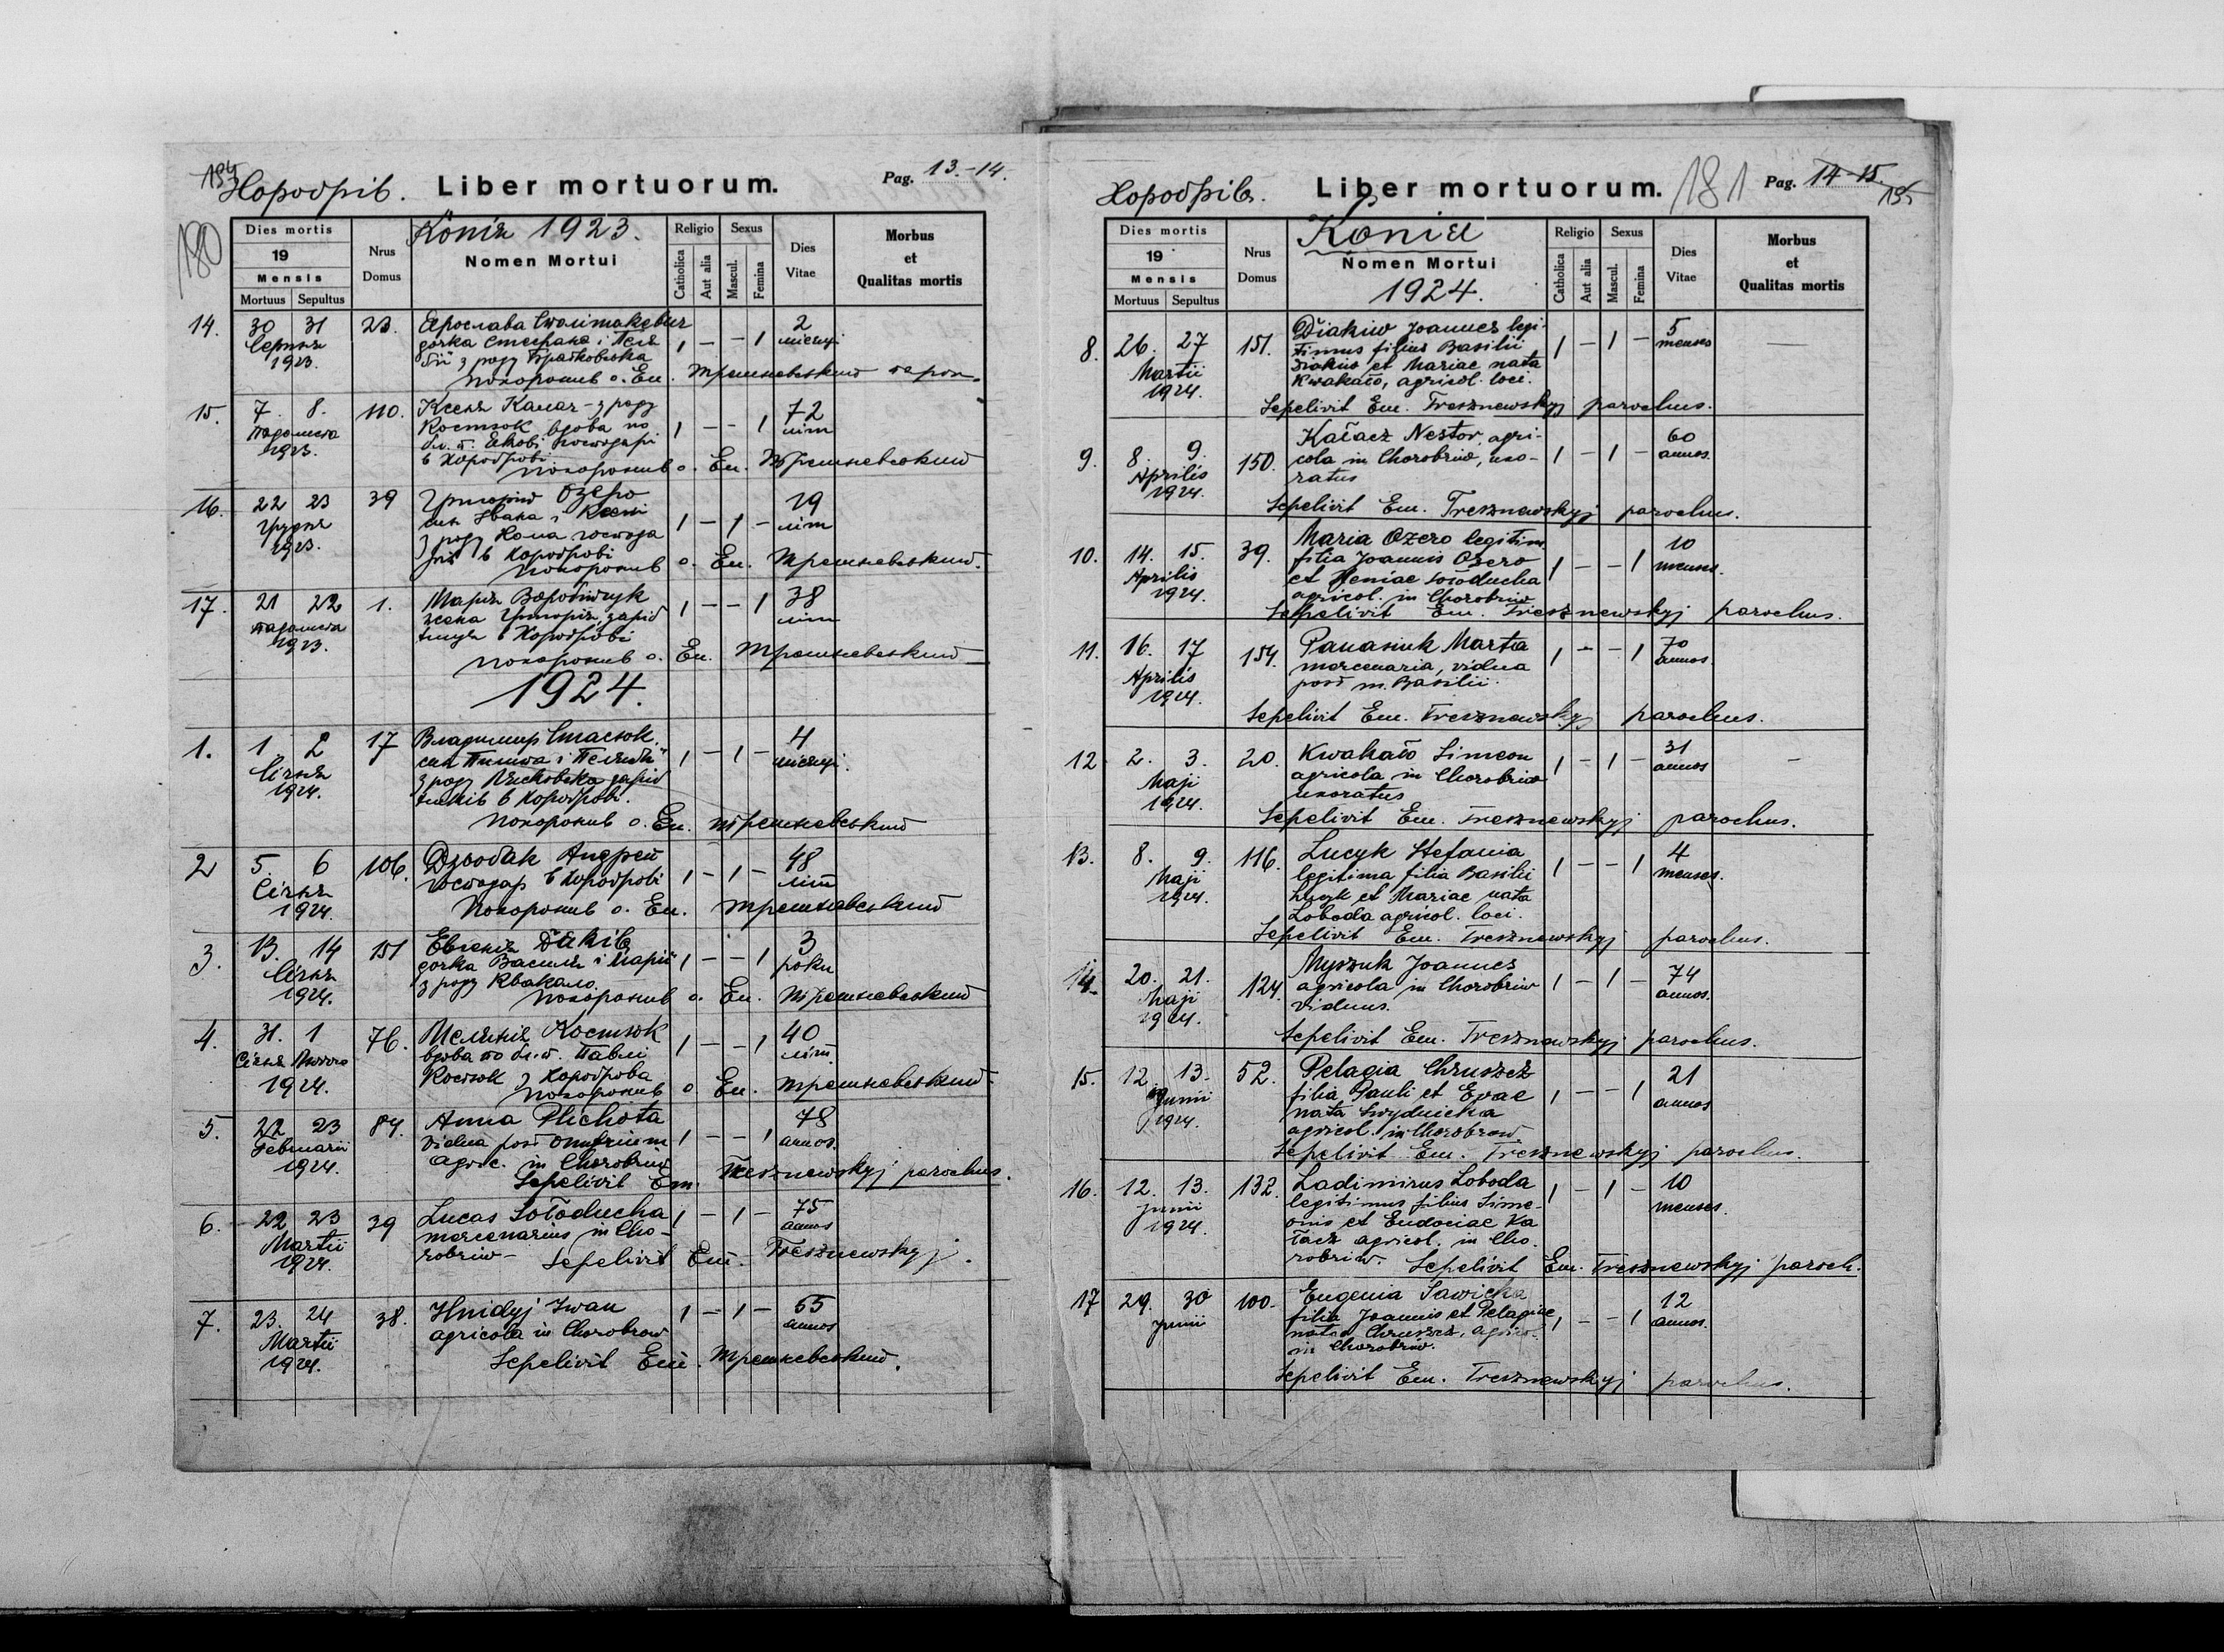 194
Хоробрів. Liber mortuorum. Pag. 13.-14.
180
Dies mortis
19
Mensis
Mortuus Sepultus
Nrus
Domus
Копія 1923.
Nomen Mortui
Religio
Catholica
Aut alia
Sexus
Mascul.
Femina
Dies
Vitae
Morbus
et
Qualitas mortis
14. 30 31 23. Ярослава 1 - - 1 2
Серпня дочка Стефана і Пела місяці
1923. ґії з роду Братковська
похоронив о. Ем. Трешневський парох.
15. 7. 8. 110. Ксеня Калач - з роду 72
Падолиста Костюк вдова по 1 - - 1 літ
1923. бл. п. Якові господарі
в Хороброві
похоронив о. Ем. Трешневський
16. 22 23 39 Григорій Озеро 19
Грудня син Івана і Ксені 1 - 1 - літ
1923. з роду господа
рів в Хороброві
похоронив о. Ем. Трешневський.
17. 21 22 1. Марія 1 - - 1 38
падолиста жена Григорія, заріб літ
1923. ниця в Хороброві
похоронив о. Ем. Трешневський
1924.
1. 1 2 17 Владимир Стасюк, 4
Січня син і Пелаґії 1 - 1 - місяці.
1924. з роду заріб
ників в Хороброві.
похоронив о. Ем. Трешневський
2 5. 6 106. Дзьобак Андрей 1 - 1 - 48
Січня господар в Хороброві літ
1924. Похоронив о. Ем. Трешневський
3. 13. 14 151 Евгенія Дяків 3
Січня дочка Василя і Марії 1 - - 1 роки
1924. з роду Квакало.
похоронив о. Ем. Трешневський
4. 31. 1 76. Меланія Костюк 40
Січня Лютого вдова по бл. п. Павлі 1 - - 1 літ
1924. Костюк з Хороброва
похоронив о. Ем. Трешневський.
5. 22 23 84. Anna Plichota 78
Februarii vidua post Onufrium 1 - - 1 annos.
1924. agric. in Chorobriw
Sepelivit Em. Tresznewskyj parochus.
6. 22 23 39 Lucas Sołoducha 1 - 1 - 75
Martii mercenarius in Cho- annos
1924. robriw - Sepelivit Em. Tresznewskyj.
7. 23. 24 38. Hnidyj Iwan 1 - 1 - 55
Martii agricola in Chorobrow annos
1924. Sepelivit Em. Трешневський.
Хоробрів. Liber mortuorum. 181 Pag. 14-15.
195
Dies mortis
19
Mensis
Mortuus Sepultus
Nrus
Domus
Kopia
Nomen Mortui
1924.
Religio
Catholica
Aut alia
Sexus
Mascul.
Femina
Dies
Vitae
Morbus
et
Qualitas mortis
8. 26. 27 151. Diakiw Joannes legi- 5
Martii timus filius Basilii 1 - 1 - menses
1924. Diakiw et Mariae nata
Kwakało, agricol. loci.
Sepelivit Em. Tresznewskyj parochus.
9. 8. 9. 150. Kałacz Nestor, agri- 60
Aprilis cola in Chorobriw, uxo- 1 - 1 - annos.
1924. ratus
Sepelivit Em. Tresznewskyj parochus.
10. 14. 15. 39. Maria Ozero legitim. 10
Aprilis filia Joannis Ozero 1 - - 1 menses.
1924. et Xeniae Sołoducha
agricol. in Chorobriw
Sepelivit Em. Tresznewskyj parochus.
11. 16. 17 154. Panasiuk Marta 70
Aprilis mercenaria, vidua 1 - - 1 annos.
1924. post m. Basilii.
Sepelivit Em. Tresznewskyj parochus.
12 2. 3. 20. Kwakało Simeon 31
Maji agricola in Chorobriw 1 - 1 - annos -
1924. uxoratus
Sepelivit Em. Tresznewskyj parochus.
13. 8. 9. 116. Lucyk Stefania 4
Maji legitima filia Basilii 1 - - 1 menses.
1924. Lucyk et Mariae nata
Loboda agricol. loci.
Sepelivit Em. Tresznewskyj parochus.
14. 20. 21. 124. Myszuk Joannes 74
Maji agricola in Chorobriw 1 - 1 - annos.
1924. viduus.
Sepelivit Em. Tresznewskyj parochus.
15. 12 13. 52. Pelagia Chruszcz 21
Junii filia Pauli et Evae 1 - - 1 annos
1924. nata Swydnicka
agricol. in Chorobrow.
Sepelivit Em. Tresznewskyj parochus.
16. 12. 13. 132. Ladimirus Loboda 10
Junii legitimus filius Sime- 1 - 1 - menses.
1924. onis et Eudociae Ka
łacz agricol. in Cho.
robriw. Sepelivit Em. Tresznewskyj paroch.
17 29. 30 100. Eugenia Sawicka 12
Junii filia Joannis et Pelagiae 1 - - 1 annos.
nata Chruszcz, agric.
in Chorobriw.
Sepelivit Em. Tresznewskyj parochus.